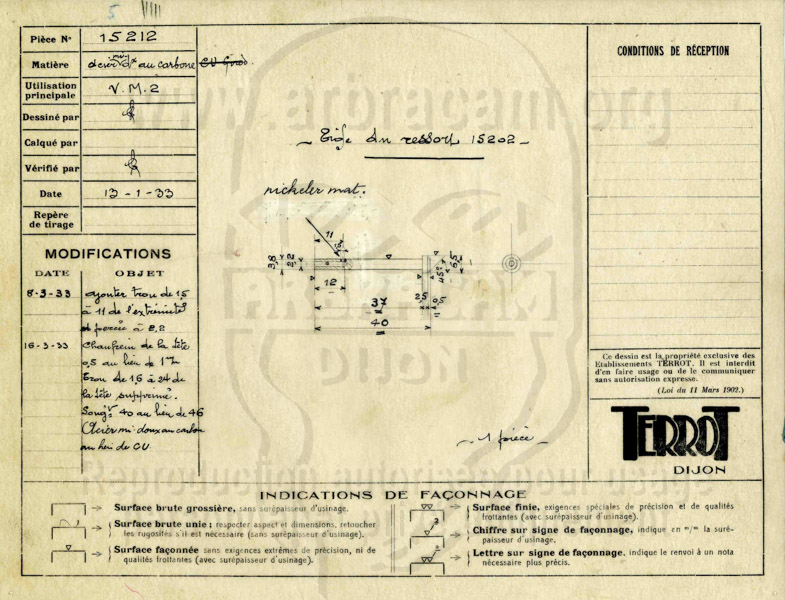 5
Pièce N° 15212
Matière acier mi-dx au carbone
Utilisation
principale V.M.2
Dessiné par
Calqué par
Vérifié par
Date 13-1-33
Repère
de tirage
MODIFICATIONS
DATE OBJET
8-3-33 ajouter trou de 1,5
à 11 de l'extrémité
et percée à 2,2
16-3-33 Chanfrein de la tête
0,5 au lieu de 1
trou de 1,6 à 24 de
la tête supprimé.
Longr 40 au lieu de 46
Acier mi-doux au carbone
au lieu de CV
www.arbracam.org
Tige du ressort 15202
nickeler mat.
11
3,8
2,2
12
37
40
2,5
0,5
45°
6,5
1 pièce
ARBRACAM
DIJON
Reproduction autorisée pour usage
CONDITIONS DE RÉCEPTION
Ce dessin est la propriété exclusive des
Etablissements TERROT. Il est interdit
d'en faire usage ou de le communiquer
sans autorisation expresse.
(Loi du 11 Mars 1902.)
TERROT
DIJON
INDICATIONS DE FAÇONNAGE
Surface brute grossière, sans surépaisseur d'usinage.
Surface brute unie : respecter aspect et dimensions, retoucher
les rugosités s'il est nécessaire (sans surépaisseur d'usinage).
Surface façonnée sans exigences extrêmes de précision, ni de
qualités frottantes (avec surépaisseur d'usinage).
Surface finie, exigences spéciales de précision et de qualités
frottantes (avec surépaisseur d'usinage).
Chiffre sur signe de façonnage, indique en m/m la suré-
paisseur d'usinage.
Lettre sur signe de façonnage, indique le renvoi à un nota
nécessaire plus précis.